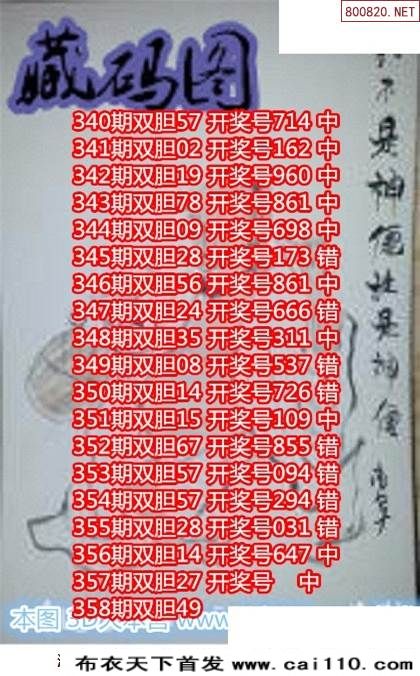 800820.NET
藏码图
340期双胆57 开奖号714 中
341期双胆02 开奖号162 中
342期双胆19 开奖号960 中
343期双胆78 开奖号861 中
344期双胆09 开奖号698 中
345期双胆28 开奖号173 错
346期双胆56 开奖号861 中
347期双胆24 开奖号666 错
348期双胆35 开奖号311 中
349期双胆08 开奖号537 错
350期双胆14 开奖号726 错
351期双胆15 开奖号109 中
352期双胆67 开奖号855 错
353期双胆57 开奖号094 错
354期双胆57 开奖号294 错
355期双胆28 开奖号031 错
356期双胆14 开奖号647 中
357期双胆27 开奖号 中
358期双胆49
不是神仙胜是神仙
本图 3D大本营 www
布衣天下首发 www.cai110.com